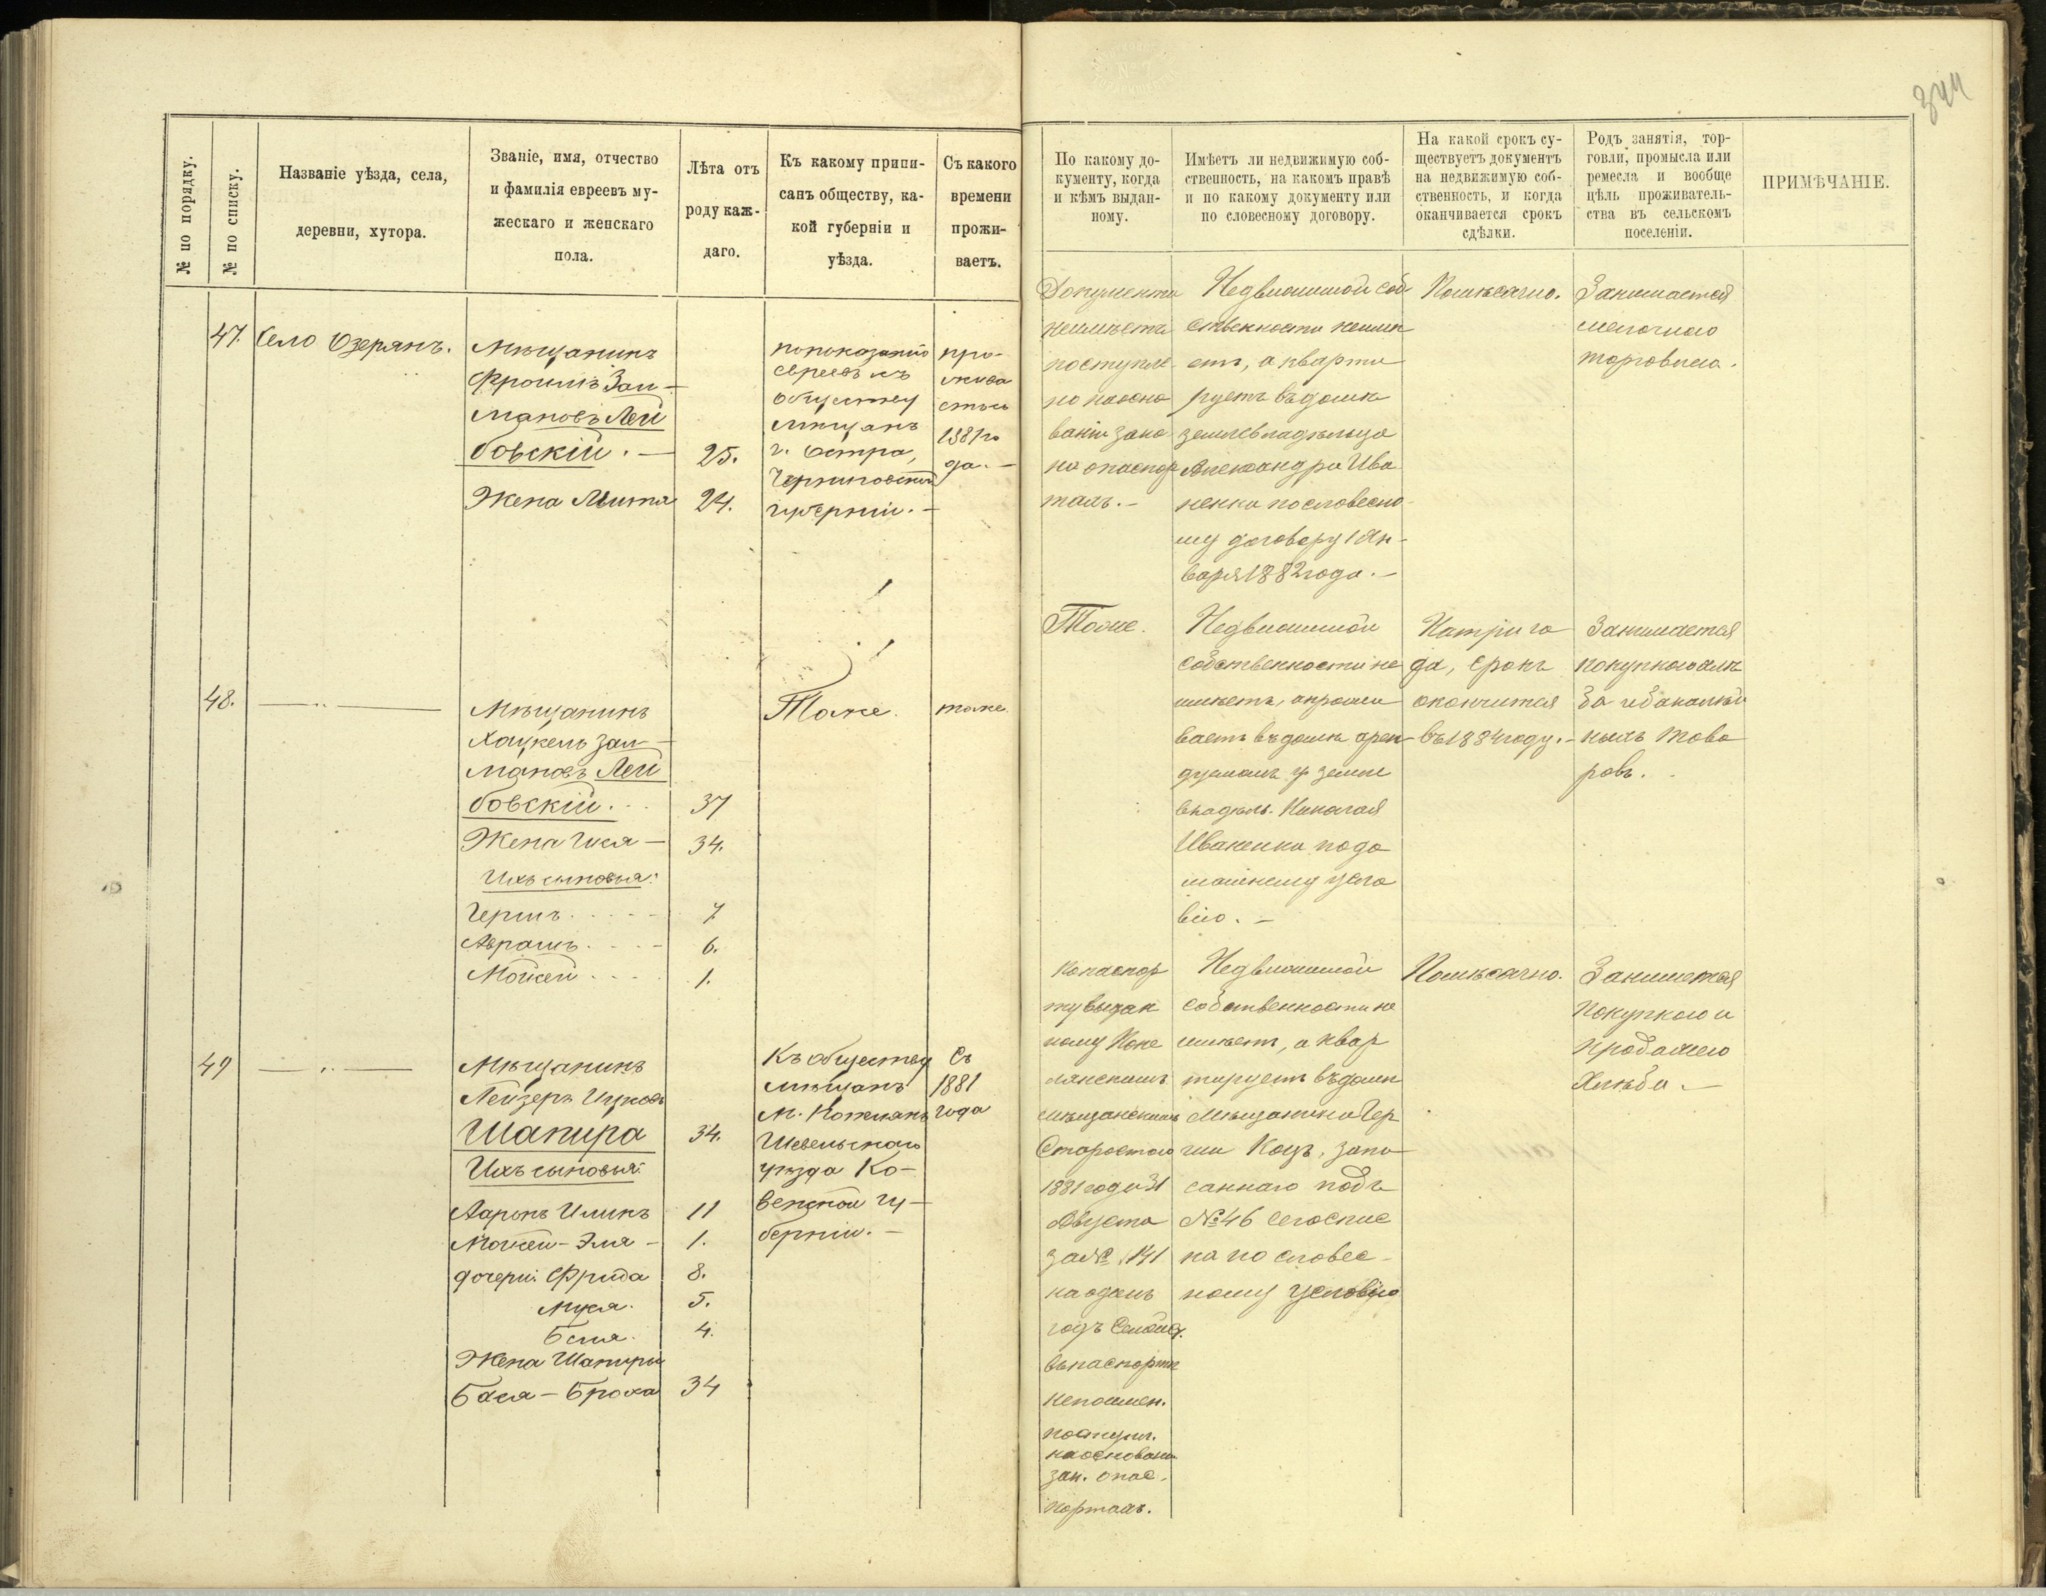 344
№ по порядку.
№ по списку.
Названіе уѣзда, села,
деревни, хутора.
Званіе, имя, отчество
и фамилія евреевъ му-
жескаго и женскаго
пола.
Лѣта отъ
роду каж-
даго.
Къ какому припи-
санъ обществу, ка-
кой губерніи и
уѣзда.
Съ какого
времени
прожи-
ваетъ.
По какому до-
кументу, когда
и кѣмъ выдан-
ному.
Имѣетъ ли недвижимую соб-
ственность, на какомъ правѣ
и по какому документу или
по словесному договору.
На какой срокъ су-
ществуетъ документъ
на недвижимую соб-
ственность, и когда
оканчивается срокъ
сдѣлки.
Родъ занятія, тор-
говли, промысла или
ремесла и вообще
цѣль проживатель-
ства въ сельскомъ
поселеніи.
ПРИМѢЧАНІЕ.
47.
Село Озерянъ.
Мѣщанинъ
Фроимъ Зал-
мановъ Лей
бовскій. —
25.
Жена
24.
по показанію
евреевъ къ
обществу
мѣщанъ
г. Остра,
Черниговской
губерніи. —
про-
жива
етъ съ
1881 го
да. —
Документа
неимѣетъ
поступле
но на осно
ваніи зако
на о паспор
тахъ. —
Недвижимой соб
ственности неимѣ
етъ, а кварти
руетъ въ домѣ
землевладѣльца
Александра Ива
ненка по словесно
му договору 1 Ян-
варя 1882 года. —
Помѣсячно.
Занимается
мелочною
торговлею.
48.
— „ —
Мѣщанинъ
Хацкель Зал-
мановъ Лей
бовскій.
37
Жена Гися —
34.
Ихъ сыновья:
Гершъ
7
Абрамъ
6.
Мойсей
1.
Тоже.
тоже
Тоже.
Недвижимой
собственности не
имѣетъ, а прожи
ваетъ въ домѣ арен
дуемомъ у земле
владѣль. Николая
Иваненки по до
машнему усло
вію. —
На три го
да, срокъ
окончится
въ 1884 году. —
Занимается
покупкою хлѣ
ба и бакалѣй
ныхъ това
ровъ.
49
— „ —
Мѣщанинъ
Лейзеръ Ицковъ
Шапира
34.
Ихъ сыновья:
Ааронъ Илинъ
11
Мойсей-Эля —
1.
дочери: Фрида
8.
Муся.
5.
Бейля.
4.
Жена Шапиры
Бася — Броха
34
Къ обществу
мѣщанъ
м.
Шавельскаго
уѣзда Ко-
венской гу-
берніи. —
Съ
1881
года
По паспор
ту выдан
ному
мѣщанскимъ
Старостою
1881 года 31
Августа
за № 141
на одинъ
годъ
въ паспортѣ
непоимен.
поступл.
на основани
зак. о пас.
портахъ.
Недвижимой
собственности не
имѣетъ, а квар
тируетъ въ домѣ
Мѣщанина Гер
ши Коцъ, запи-
саннаго подъ
№ 46 сего спис
ка по словес-
ному условію
Помѣсячно.
Занимается
покупкою и
продажею
Хлѣба. —